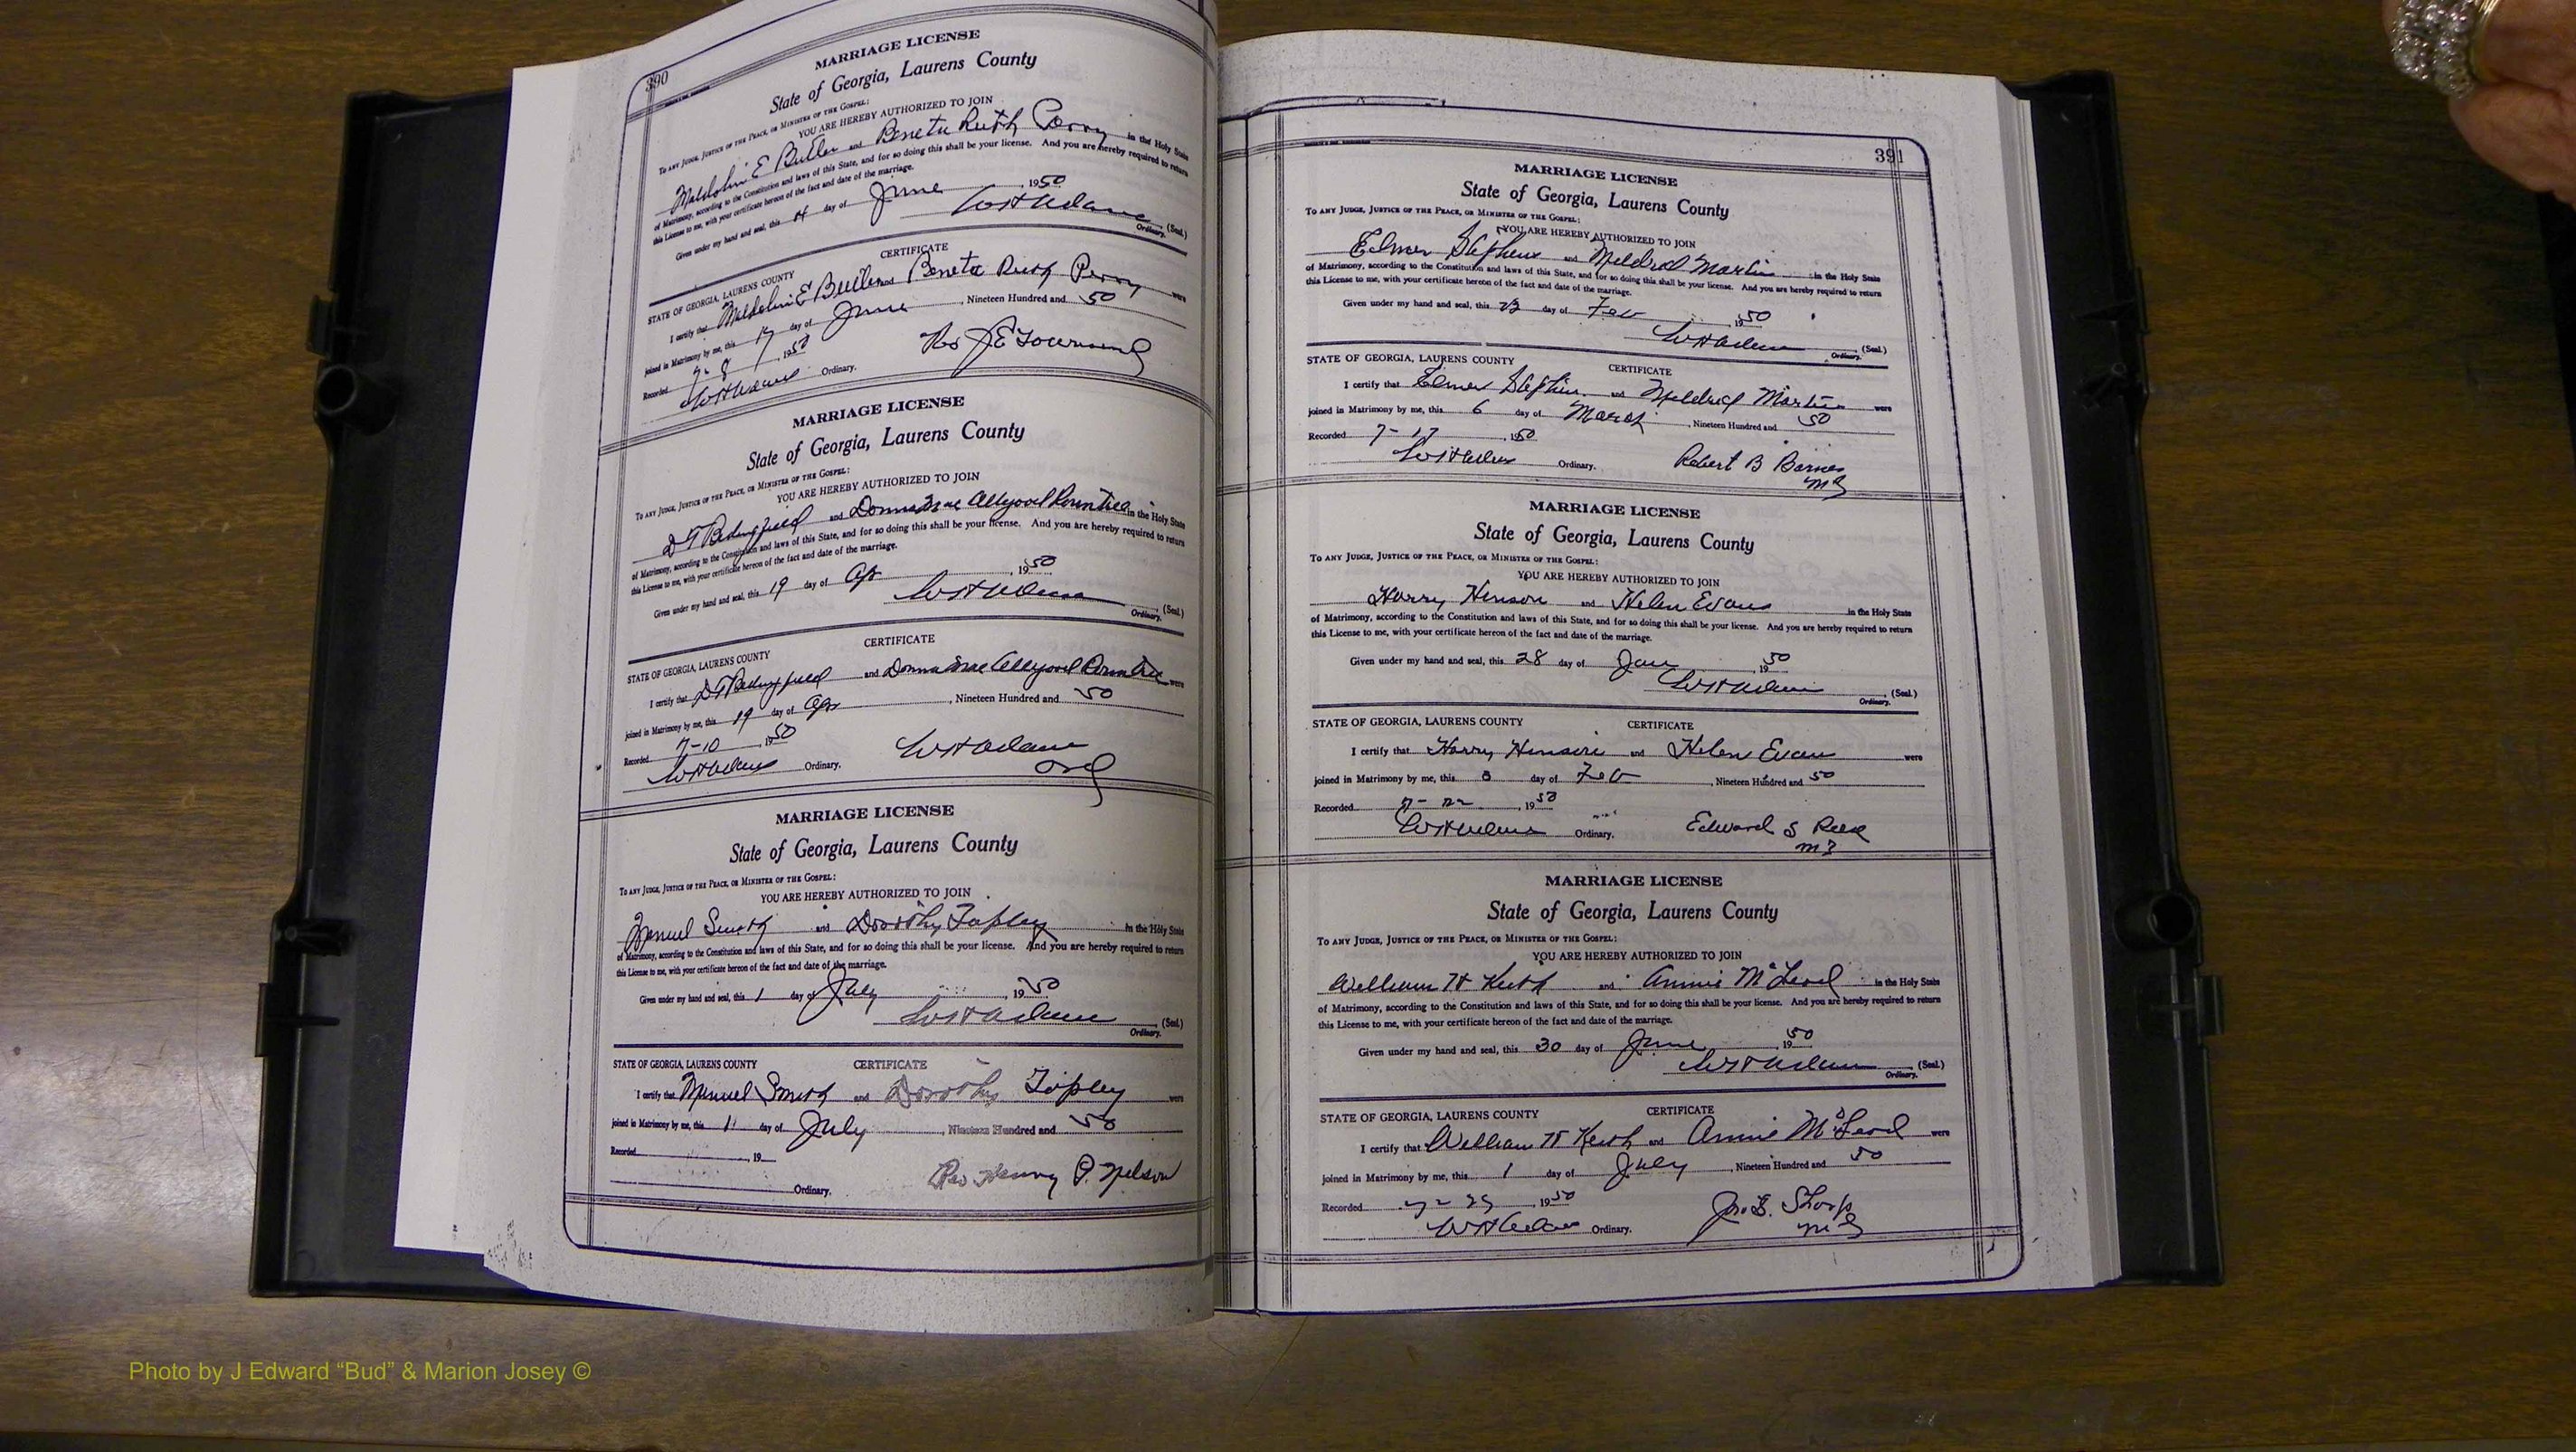 390
MARRIAGE LICENSE
State of Georgia, Laurens County
TO ANY JUDGE, JUSTICE OF THE PEACE, OR MINISTER OF THE GOSPEL:
YOU ARE HEREBY AUTHORIZED TO JOIN
E Butler and Beneta Ruth Perry in the Holy State
of Matrimony, according to the Constitution and laws of this State, and for so doing this shall be your license. And you are hereby required to return
this License to me, with your certificate hereon of the fact and date of the marriage.
Given under my hand and seal, this day of June, 1950
WH Adams (Seal.)
Ordinary.
CERTIFICATE
STATE OF GEORGIA, LAURENS COUNTY
I certify that E Butler and Beneta Ruth Perry were
joined in Matrimony by me, this 17 day of June, Nineteen Hundred and 50
Recorded 7-8, 1950
WH Adams Ordinary.
Rev J E Townsend
MARRIAGE LICENSE
State of Georgia, Laurens County
TO ANY JUDGE, JUSTICE OF THE PEACE, OR MINISTER OF THE GOSPEL:
YOU ARE HEREBY AUTHORIZED TO JOIN
D T Bedingfield and Donna Mae Allgood Rountree in the Holy State
of Matrimony, according to the Constitution and laws of this State, and for so doing this shall be your license. And you are hereby required to return
this License to me, with your certificate hereon of the fact and date of the marriage.
Given under my hand and seal, this 19 day of Apr, 1950
WH Adams (Seal.)
Ordinary.
CERTIFICATE
STATE OF GEORGIA, LAURENS COUNTY
I certify that D T Bedingfield and Donna Mae Allgood Rountree were
joined in Matrimony by me, this 19 day of Apr, Nineteen Hundred and 50
Recorded 7-10, 1950
WH Adams Ordinary.
WH Adams
Ord
MARRIAGE LICENSE
State of Georgia, Laurens County
TO ANY JUDGE, JUSTICE OF THE PEACE, OR MINISTER OF THE GOSPEL:
YOU ARE HEREBY AUTHORIZED TO JOIN
Smith and Dorothy Topley in the Holy State
of Matrimony, according to the Constitution and laws of this State, and for so doing this shall be your license. And you are hereby required to return
this License to me, with your certificate hereon of the fact and date of the marriage.
Given under my hand and seal, this 1 day of July, 1950
WH Adams (Seal.)
Ordinary.
STATE OF GEORGIA, LAURENS COUNTY CERTIFICATE
I certify that Smith and Dorothy Topley were
joined in Matrimony by me, this 1 day of July, Nineteen Hundred and 50
Recorded , 19
Ordinary.
Rev Henry P. Nelson
391
MARRIAGE LICENSE
State of Georgia, Laurens County
TO ANY JUDGE, JUSTICE OF THE PEACE, OR MINISTER OF THE GOSPEL:
YOU ARE HEREBY AUTHORIZED TO JOIN
Elmer Stephens and Meldred Martin in the Holy State
of Matrimony, according to the Constitution and laws of this State, and for so doing this shall be your license. And you are hereby required to return
this License to me, with your certificate hereon of the fact and date of the marriage.
Given under my hand and seal, this 23 day of Feb, 1950
WH Adams (Seal.)
Ordinary.
STATE OF GEORGIA, LAURENS COUNTY CERTIFICATE
I certify that Elmer Stephens and Meldred Martin were
joined in Matrimony by me, this 6 day of March, Nineteen Hundred and 50
Recorded 7-17, 1950
WH Adams Ordinary.
Robert B Barnes
MG
MARRIAGE LICENSE
State of Georgia, Laurens County
TO ANY JUDGE, JUSTICE OF THE PEACE, OR MINISTER OF THE GOSPEL:
YOU ARE HEREBY AUTHORIZED TO JOIN
Harry Henson and Helen Evans in the Holy State
of Matrimony, according to the Constitution and laws of this State, and for so doing this shall be your license. And you are hereby required to return
this License to me, with your certificate hereon of the fact and date of the marriage.
Given under my hand and seal, this 28 day of Jan, 1950
WH Adams (Seal.)
Ordinary.
STATE OF GEORGIA, LAURENS COUNTY CERTIFICATE
I certify that Harry Henson and Helen Evans were
joined in Matrimony by me, this day of Feb, Nineteen Hundred and 50
Recorded 7-22, 1950
WH Adams Ordinary.
Edward S
MG
MARRIAGE LICENSE
State of Georgia, Laurens County
TO ANY JUDGE, JUSTICE OF THE PEACE, OR MINISTER OF THE GOSPEL:
YOU ARE HEREBY AUTHORIZED TO JOIN
William H Keith and Annie McLeod in the Holy State
of Matrimony, according to the Constitution and laws of this State, and for so doing this shall be your license. And you are hereby required to return
this License to me, with your certificate hereon of the fact and date of the marriage.
Given under my hand and seal, this 30 day of June, 1950
WH Adams (Seal.)
Ordinary.
STATE OF GEORGIA, LAURENS COUNTY CERTIFICATE
I certify that William H Keith and Annie McLeod were
joined in Matrimony by me, this 1 day of July, Nineteen Hundred and 50
Recorded 7-25, 1950
WH Adams Ordinary.
Jno. E. Sharp
MG
Photo by J Edward “Bud” & Marion Josey ©